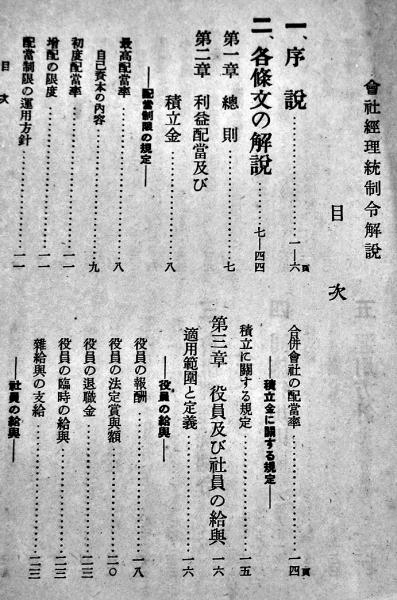 會社經理統制令解說
目次
一、序說……一—六頁
二、各條文の解說……七—四四
第一章 總則……七
第二章 利益配當及び
積立金……八
——配當制限の規定——
最高配當率……八
自己資本の內容……九
初度配當率……一一
增配の限度……一一
配當制限の運用方針……一一
目次
合併會社の配當率……一四頁
——積立金に關する規定——
積立に關する規定……一五
第三章 役員及び社員の給與……一六
適用範圍と定義……一六
——役員の給與——
役員の報酬……一八
役員の法定賞與額……二〇
役員の退職金……二三
役員の臨時の給與……二三
雜給與の支給……二三
——社員の給與——